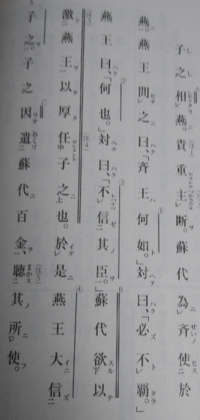 子之相燕、貴重主断。蘇代為斉使於
燕。燕王問之曰、「斉王何如。」対曰、「必不覇。」
燕王曰、「何也。」対曰、「不信其臣。」蘇代欲以
激燕王以厚任子之也。於是燕王大信
子之。子之因遺蘇代百金、聴其所使。